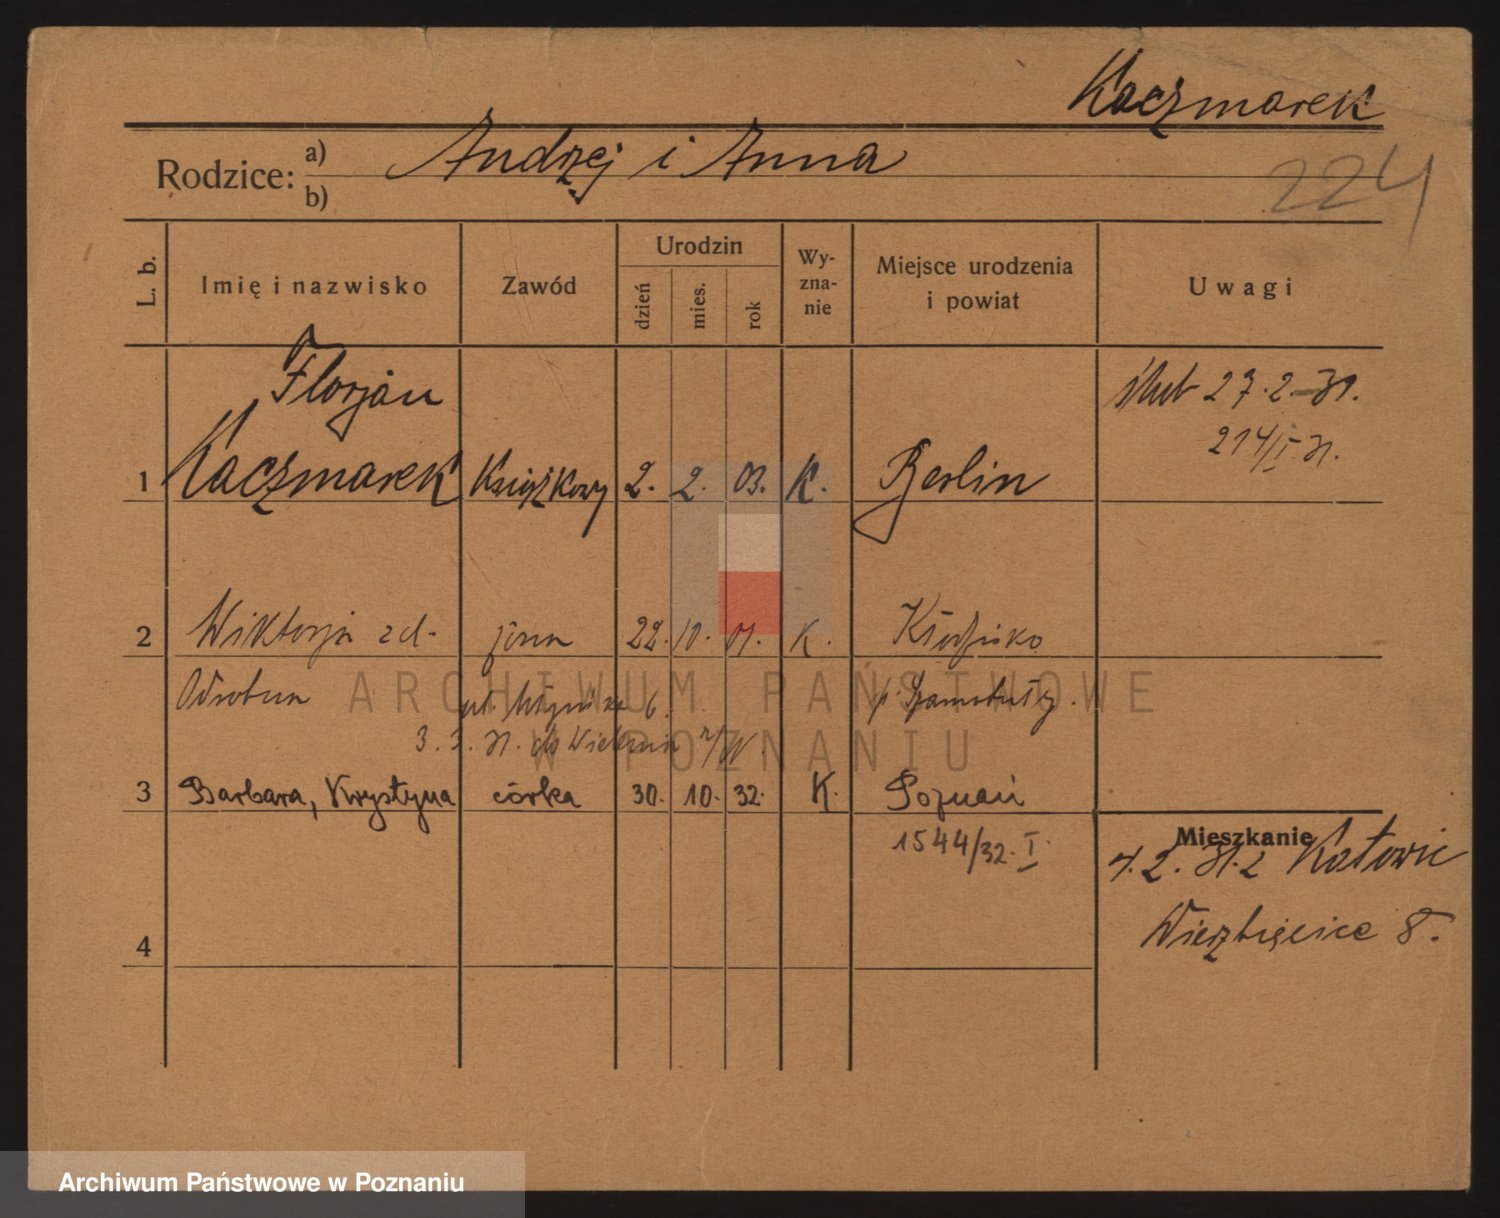 Kaczmarek
Rodzice: a) Andrzej i Anna
b)
224
L. b.
Imię i nazwisko
Zawód
Urodzin
dzień
mies.
rok
Wy-
zna-
nie
Miejsce urodzenia
i powiat
Uwagi
Florjan
1 Kaczmarek Książkowy 2. 2. 03. K. Berlin
27.2.31.
214/I 31.
2 Wiktorja zd. żona 22. 10. 01. K. Kłodzisko
Odrobna
p. Szamotuły.
6.
3. 3. 31. do
3 Barbara, Krystyna córka 30. 10. 32. K. Poznań
1544/32. I
Mieszkanie
2. 31. z Katowic
Wierzbięcice 8.
4
ARCHIWUM PAŃSTWOWE
W POZNANIU
Archiwum Państwowe w Poznaniu